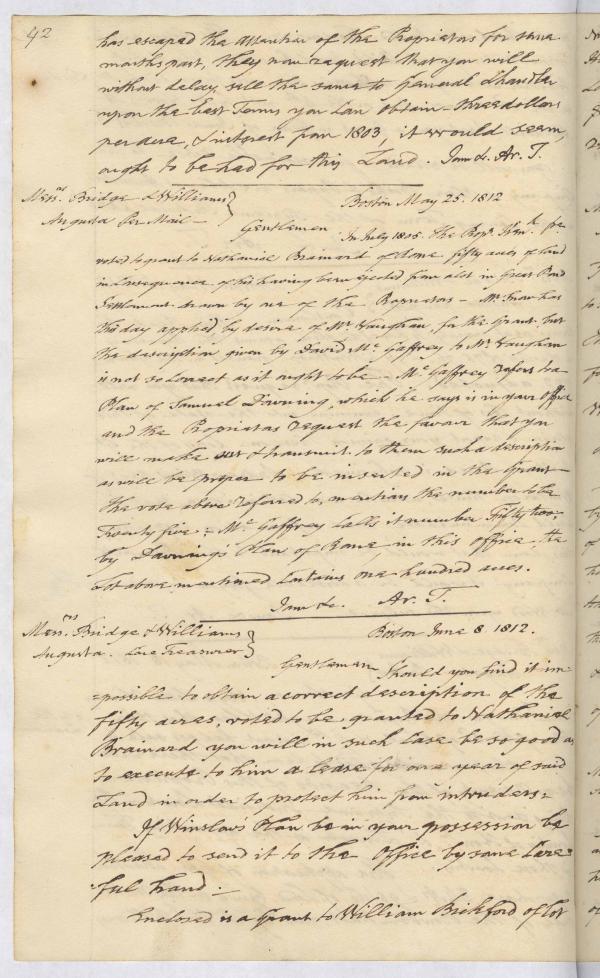 42
has escaped the attention of the Proprietors for some
months past, they now request that you will
without delay, sell the same to General Chandler
upon the best Terms you can obtain - three dollars
per acre, & interest from 1803, it would seem,
ought to be had for this Land. I am &c. Ar. T.
Messrs. Bridge & Williams
Augusta Per Mail -
Boston May 25. 1812
Gentlemen
In July 1805 the Propr.
voted to grant to Nathaniel Brainard of Rome fifty acres of land
in consequence of his having been ejected from a lot in Great Pond
Settlement drawn by one of the Proprietors - Mr. Snow has
this day applied by desire of Mr. Vaughan, for the Grant, but
the description given by David McGaffrey to Mr. Vaughan
is not so correct as it ought to be - McGaffrey refers to a
Plan of Samuel Downing, which he says is in your office
and the Proprietors request the favour that you
will make out & transmit to them such a description
as will be proper to be inserted in the Grant -
the vote above referred to, mentions the number to be
Twenty five; - McGaffrey calls it number Fifty two;
by Downing's Plan of Rome, in this office, the
Lot above mentioned contains one hundred acres.
I am &c. Ar. T.
Messrs. Bridge & Williams
Augusta. Treasurer
Boston June 8. 1812.
Gentlemen
Should you find it im-
=possible to obtain a correct description of the
fifty acres, voted to be granted to Nathaniel
Brainard you will in such case be so good as
to execute to him a lease for one year of said
Land in order to protect him from intruders =
If Winslow's Plan be in your possession be
pleased to send it to the Office by some care=
=ful hand. -
Enclosed is a Grant to William Bickford of Lot